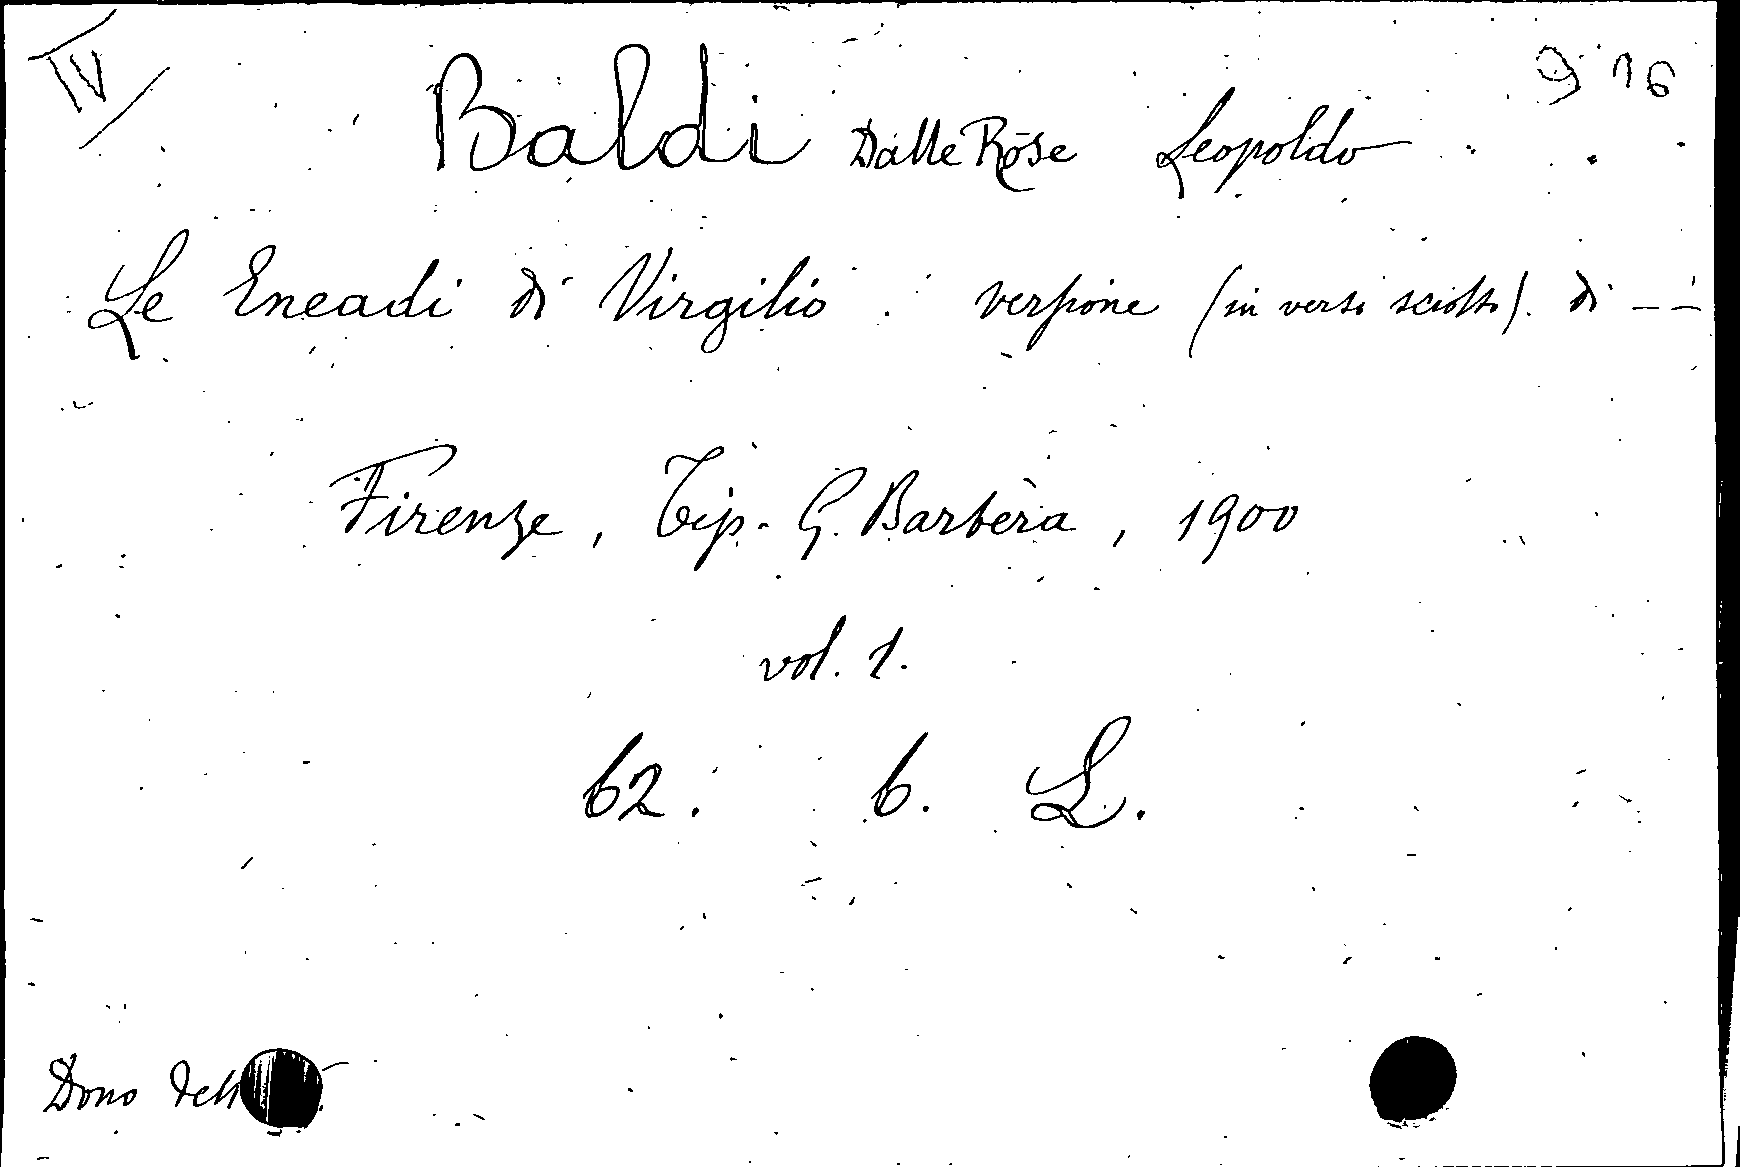 IV 9 16
Baldi Dalle Rose Leopoldo
Le Eneadi di Virgilio : versione (in versi sciolti). di --
Firenze, Tip. G. Barbèra, 1900
vol. 1.
62. 6. L.
Dono dell